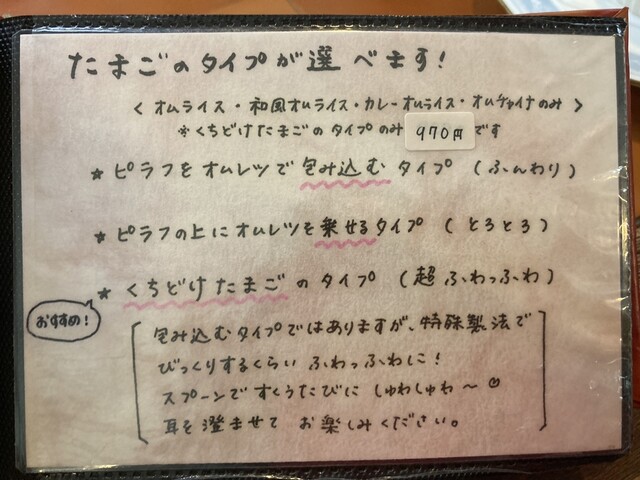 たまごのタイプが選べます!
< オムライス・和風オムライス・カレーオムライス・オムチャイナのみ >
※くちどけたまごのタイプのみ 970円 です
★ ピラフをオムレツで包み込むタイプ (ふんわり)
★ ピラフの上にオムレツを乗せるタイプ (とろとろ)
★ くちどけたまごのタイプ (超ふわっふわ)
おすすめ!
包み込むタイプではありますが、特殊製法で
びっくりするくらい ふわっふわに!
スプーンですくうたびに しゅわしゅわ〜☺
耳を澄ませて お楽しみください。